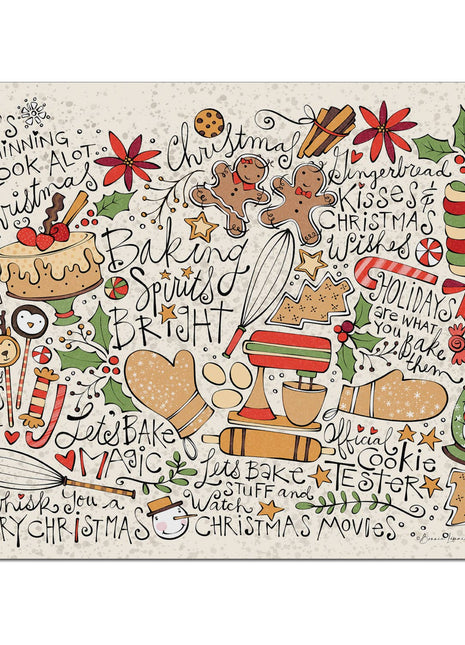 Christmas
Gingerbread
Kisses &
CHRISTMAS
Wishes
Baking
Spirits
BRIGHT
HOLIDAYS
are WHAT
YOU BAKE
them
Let's BAKE
MAGIC
Official
Cookie
TESTER
Let's BAKE
STUFF and
Watch
CHRISTMAS MOVIES
Whisk You a
RY CHRISTMAS
'S
INNING
OOK ALOT
ristmas